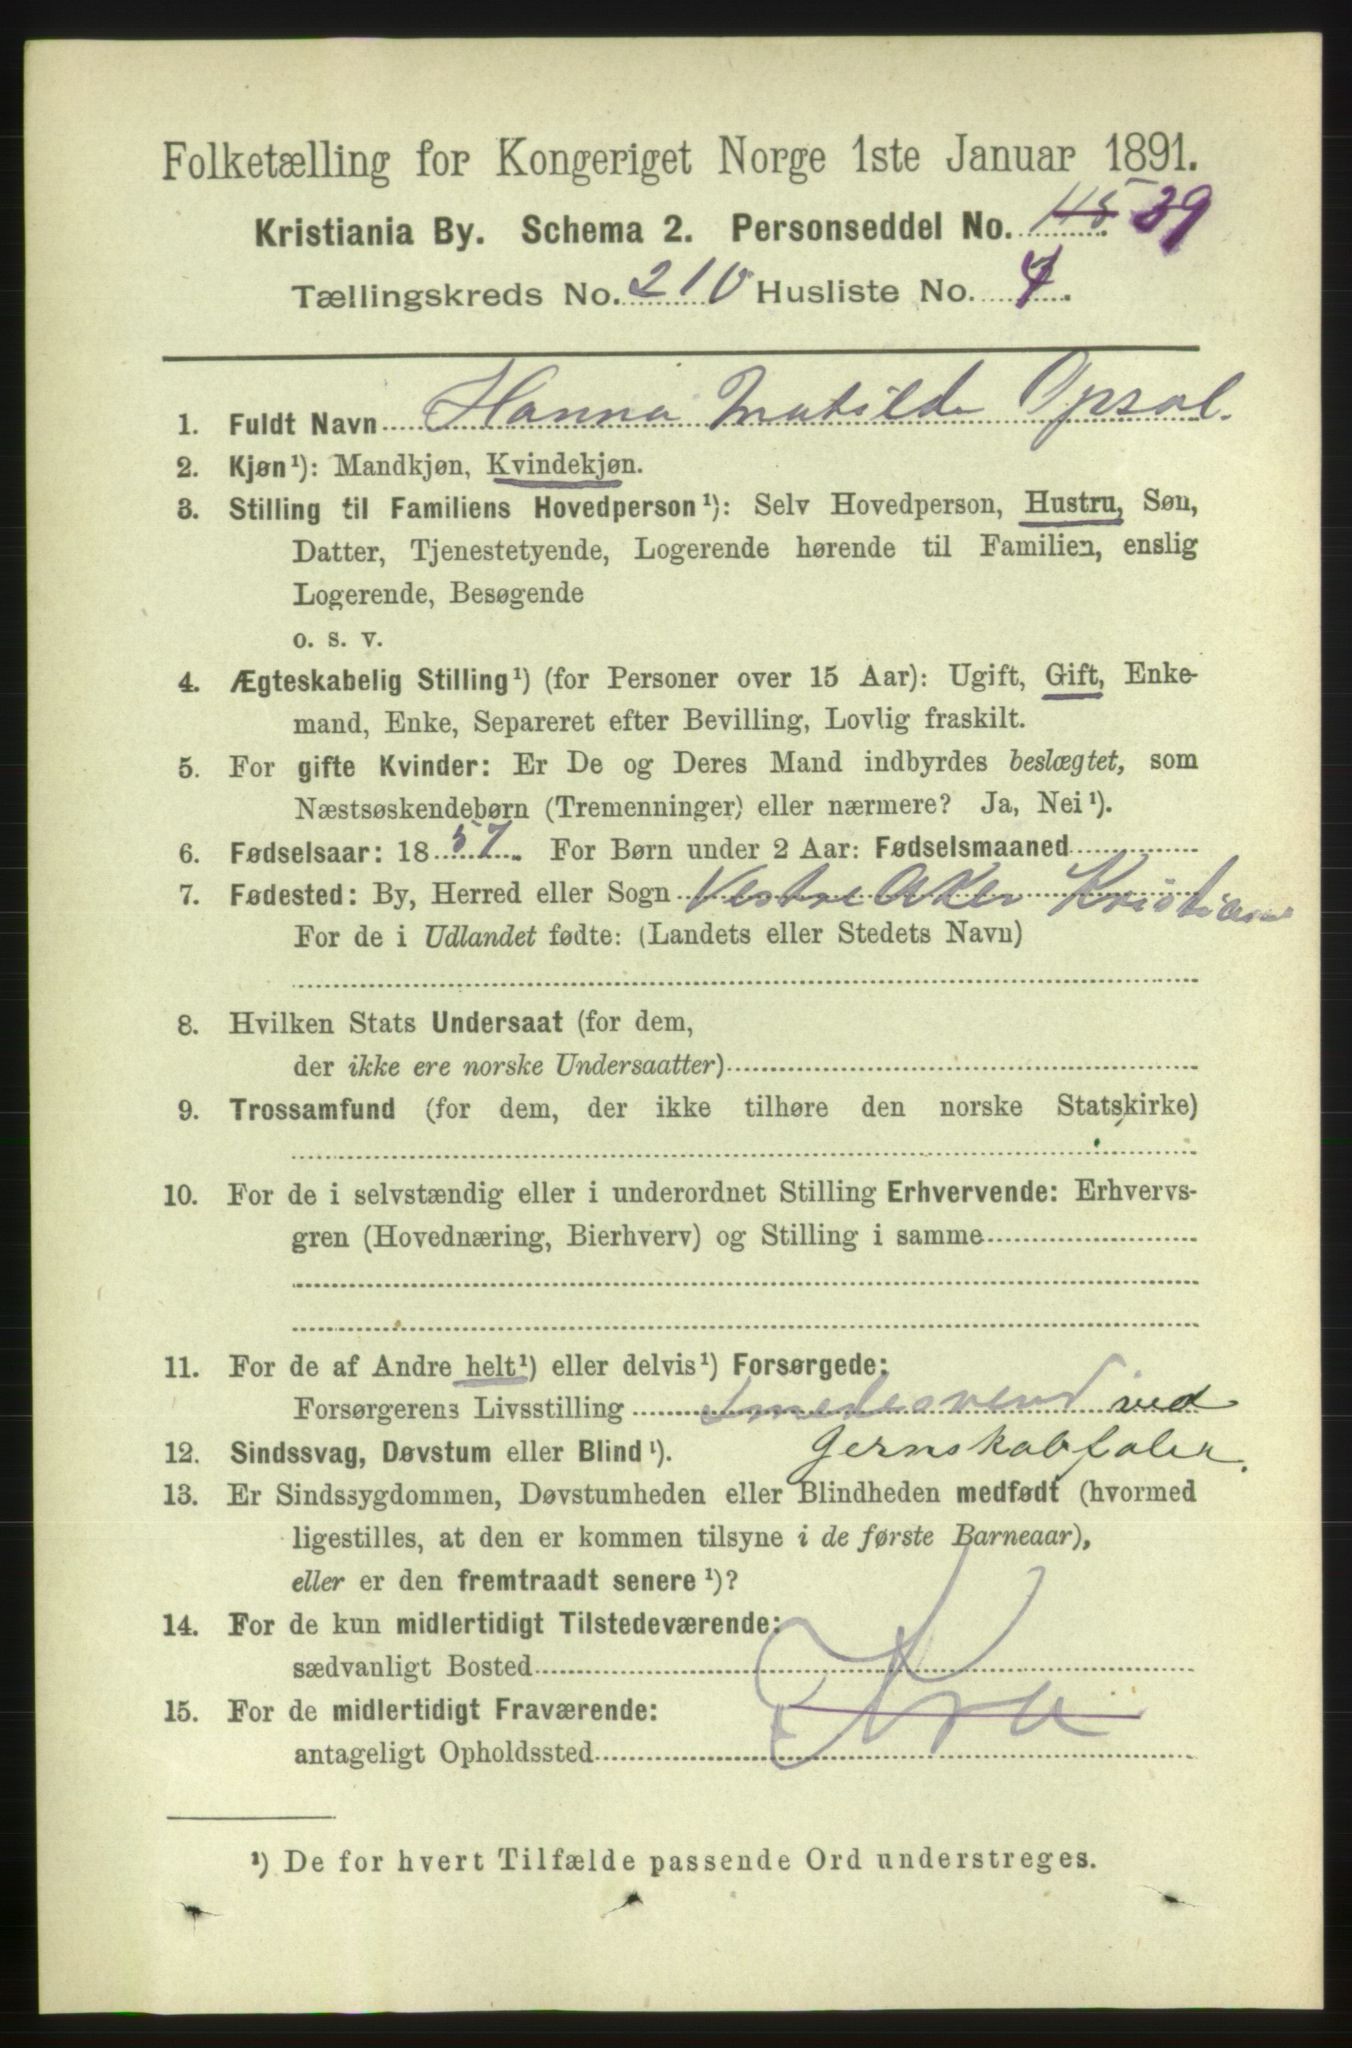 Folketælling for Kongeriget Norge 1ste Januar 1891.
Kristiania By. Schema 2. Personseddel No. 115 39
Tællingskreds No. 210 Husliste No. 7.
1. Fuldt Navn Hanna Matilde Opsal.
2. Kjøn¹): Mandkjøn, Kvindekjøn.
3. Stilling til Familiens Hovedperson¹): Selv Hovedperson, Hustru, Søn,
Datter, Tjenestetyende, Logerende hørende til Familien, enslig
Logerende, Besøgende
o. s. v.
4. Ægteskabelig Stilling¹) (for Personer over 15 Aar): Ugift, Gift, Enke-
mand, Enke, Separeret efter Bevilling, Lovlig fraskilt.
5. For gifte Kvinder: Er De og Deres Mand indbyrdes beslægtet, som
Næstsøskendebørn (Tremenninger) eller nærmere? Ja, Nei¹).
6. Fødselsaar: 1857. For Børn under 2 Aar: Fødselsmaaned
7. Fødested: By, Herred eller Sogn Vestre Aker Kristiania
For de i Udlandet fødte: (Landets eller Stedets Navn)
8. Hvilken Stats Undersaat (for dem,
der ikke ere norske Undersaatter)
9. Trossamfund (for dem, der ikke tilhøre den norske Statskirke)
10. For de i selvstændig eller i underordnet Stilling Erhvervende: Erhvervs-
gren (Hovednæring, Bierhverv) og Stilling i samme
11. For de af Andre helt¹) eller delvis¹) Forsørgede:
Forsørgerens Livsstilling Smedesvend ved
12. Sindssvag, Døvstum eller Blind¹). Jernskabfabr.
13. Er Sindssygdommen, Døvstumheden eller Blindheden medfødt (hvormed
ligestilles, at den er kommen tilsyne i de første Barneaar),
eller er den fremtraadt senere¹)?
14. For de kun midlertidigt Tilstedeværende:
sædvanligt Bosted
15. For de midlertidigt Fraværende:
antageligt Opholdssted
Kra
¹) De for hvert Tilfælde passende Ord understreges.